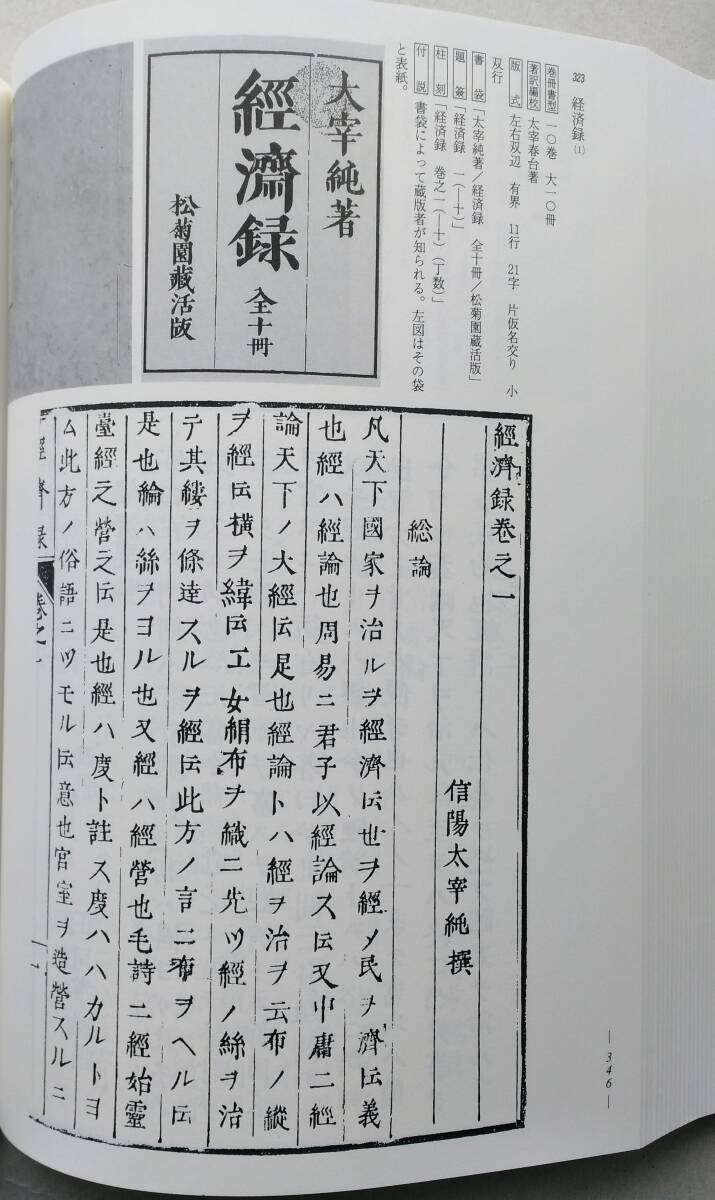 323 経済録(1)
巻冊書型 一〇巻 大一〇冊
著訳編校 太宰春台著
版式 左右双辺 有界 11行 21字 片仮名交り 小
双行
書袋 「太宰純著/経済録 全十冊/松菊園蔵活版」
題簽 「経済録 一(—十)」
柱刻 「経済録 巻之一(—十)(丁数)」
付説 書袋によって蔵版者が知られる。左図はその袋
と表紙。
太宰純著
經濟録 全十冊
松菊園藏活版
經濟録卷之一
信陽太宰純撰
総論
凡天下國家ヲ治ルヲ經濟伝世ヲ經メ民ヲ濟伝義
也經ハ經論也周易ニ君子以經論ス伝又中庸ニ經
論天下ノ大經伝足也經論トハ經ヲ治ヲ云布ノ縱
ヲ經伝横ヲ緯伝工女絹布ヲ織ニ先ツ經ノ絲ヲ治
テ其縷ヲ條達スルヲ經伝此方ノ言ニ布ヲヘル伝
是也綸ハ絲ヲヨル也又經ハ經營也毛詩ニ經始靈
臺經之營之伝是也經ハ度ト註ス度ハハカルトヨ
ム此方ノ俗語ニツモル伝意也宮室ヲ造營スルニ
經濟録 卷之一 一
—346—